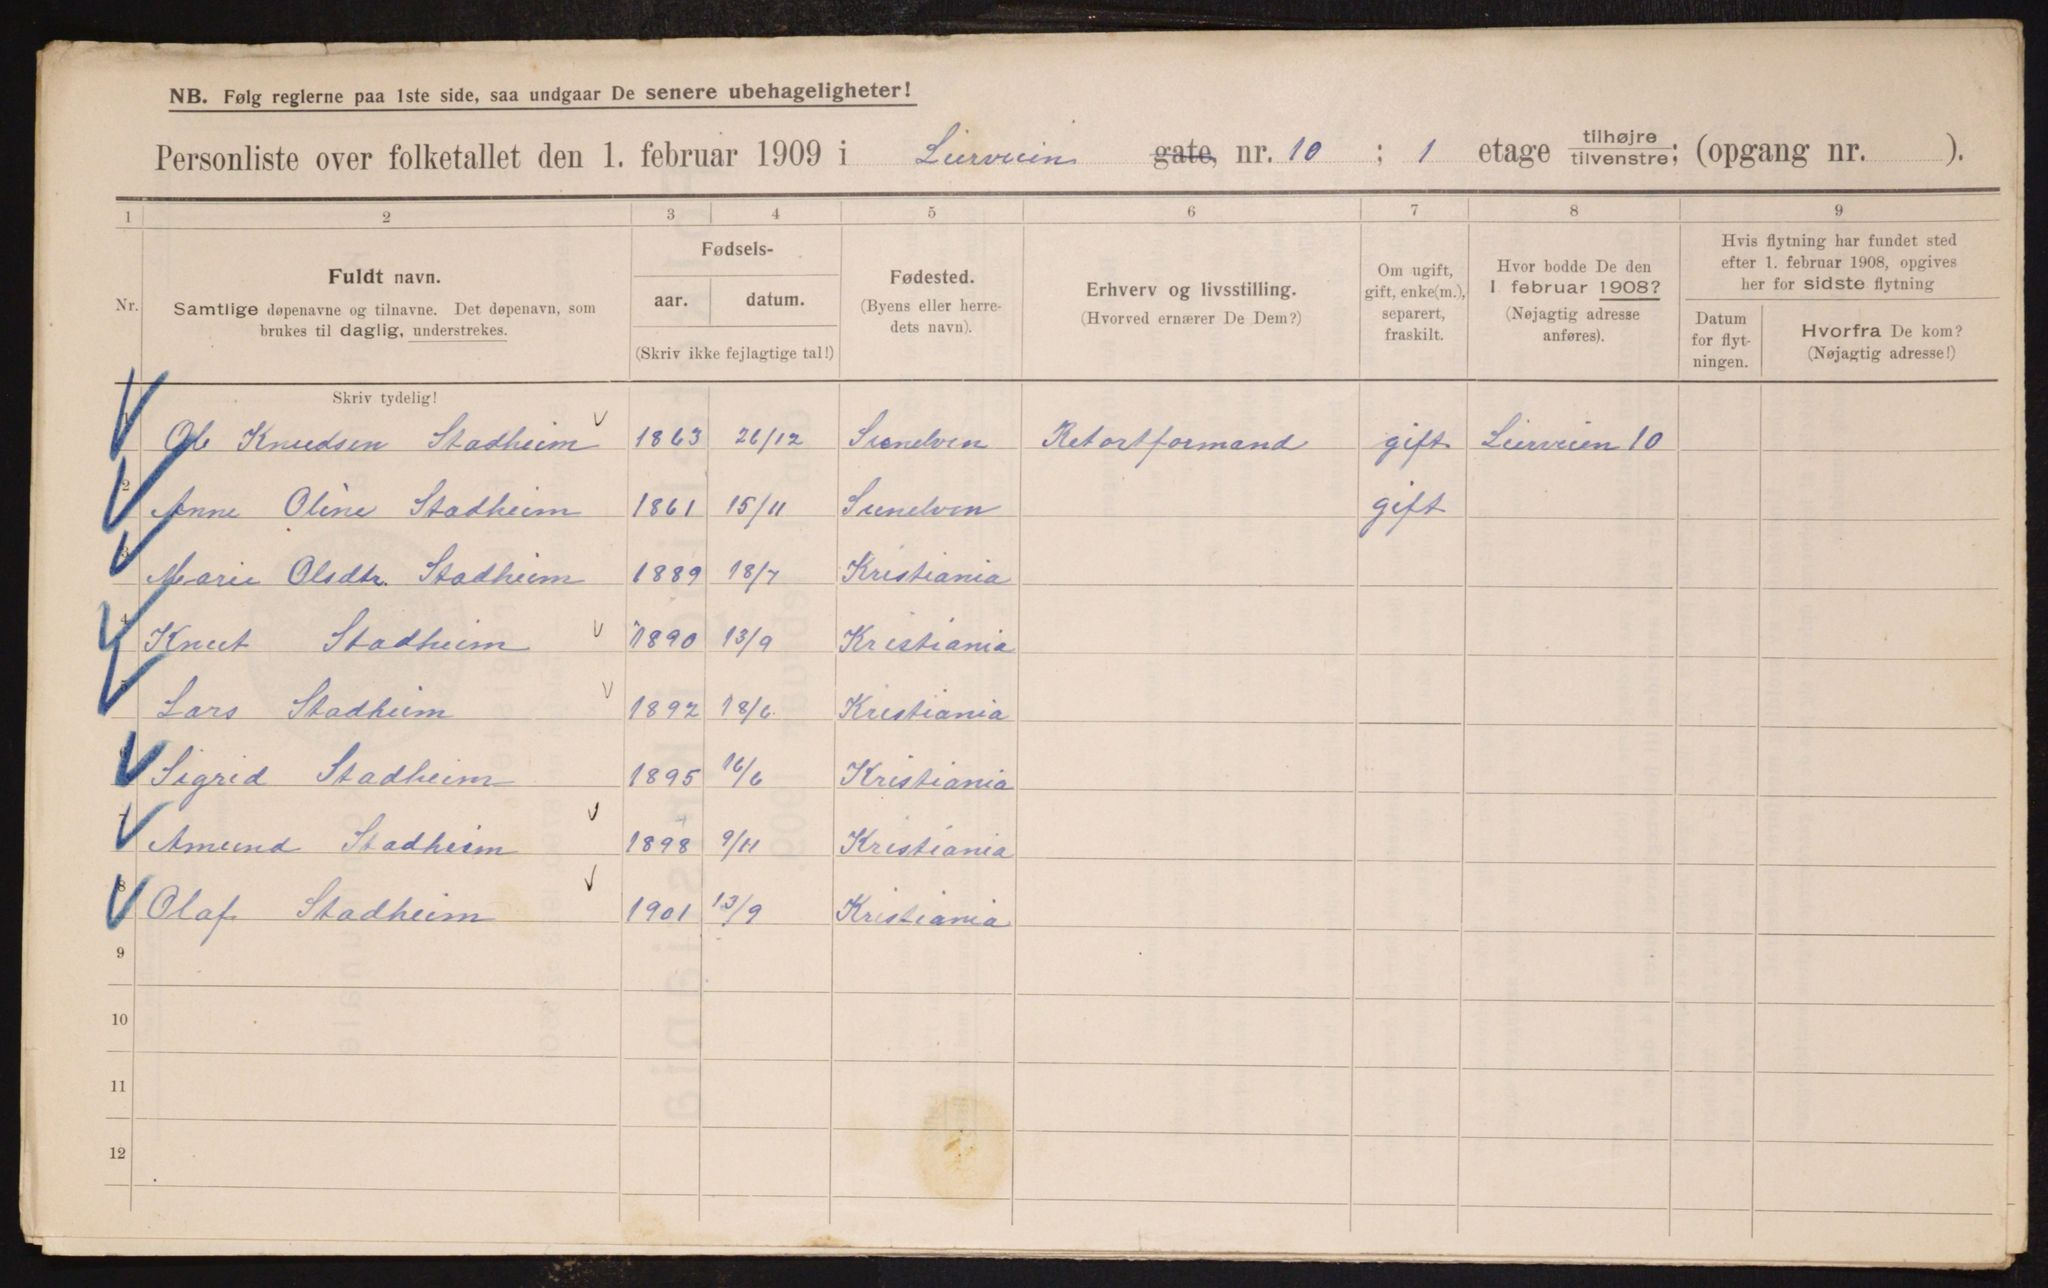 NB. Følg reglerne paa 1ste side, saa undgaar De senere ubehageligheter!
Personliste over folketallet den 1. februar 1909 i Lierveien gate, nr. 10 ; 1 etage tilhøjre tilvenstre; (opgang nr. ).
1 2 3 4 5 6 7 8 9
Nr.
Fuldt navn.
Samtlige døpenavne og tilnavne. Det døpenavn, som
brukes til daglig, understrekes.
Fødsels-
aar. datum.
(Skriv ikke fejlagtige tal!)
Fødested.
(Byens eller herre-
dets navn).
Erhverv og livsstilling.
(Hvorved ernærer De Dem?)
Om ugift,
gift, enke(m.),
separert,
fraskilt.
Hvor bodde De den
1. februar 1908?
(Nøjagtig adresse
anføres).
Hvis flytning har fundet sted
efter 1. februar 1908, opgives
her for sidste flytning
Datum
for flyt-
ningen.
Hvorfra De kom?
(Nøjagtig adresse!)
Skriv tydelig!
1 Ole Knudsen Stadheim 1863 26/12 Sunelven Retortformand gift Lierveien 10
2 Anne Oline Stadheim 1861 15/11 Sunelven gift
3 Marie Olsdtr. Stadheim 1889 18/7 Kristiania
4 Knut Stadheim 1890 13/9 Kristiania
5 Lars Stadheim 1892 18/6 Kristiania
6 Sigrid Stadheim 1895 16/6 Kristiania
7 Amund Stadheim 1898 9/11 Kristiania
8 Olaf Stadheim 1901 13/9 Kristiania
9
10
11
12